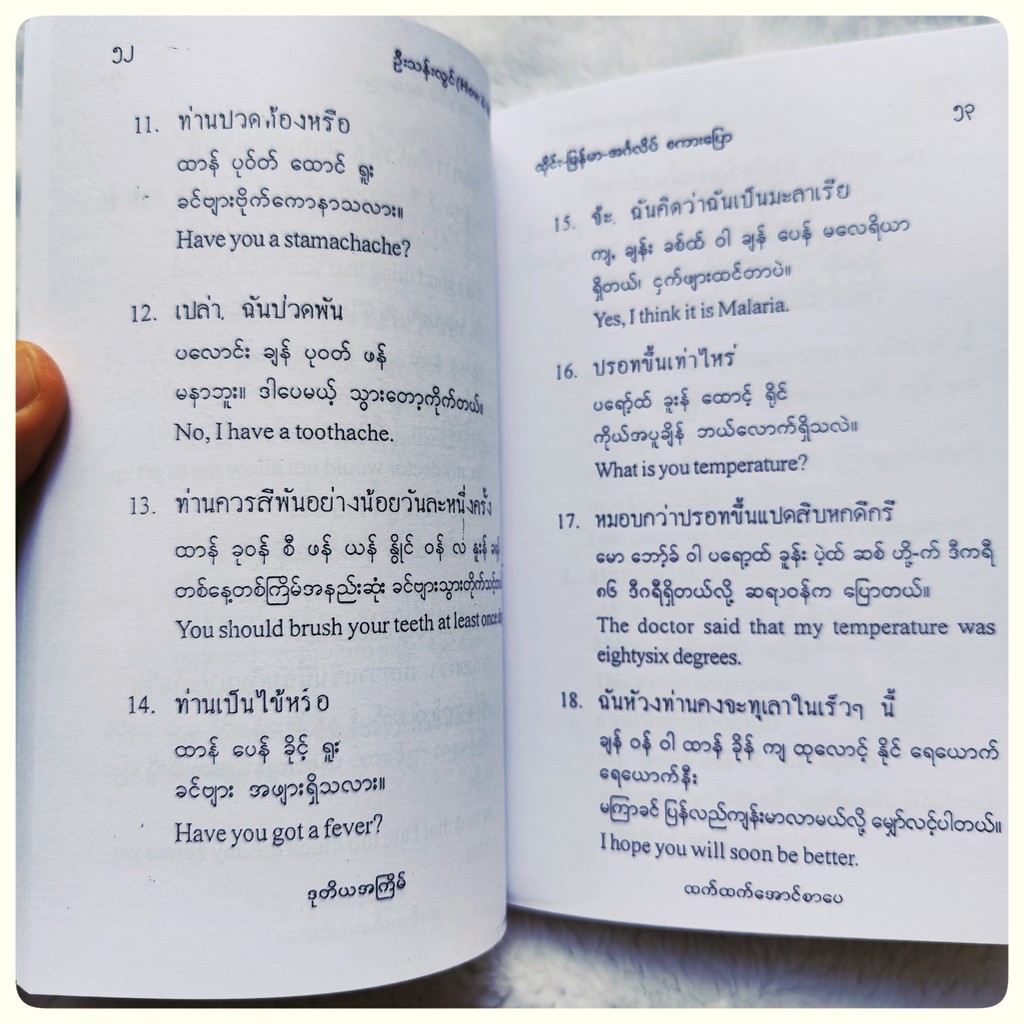 ၅၂
ဦးသန်းလွင် (How
11. ท่านปวดท้องหรือ
ထာန် ပုဝ်တ် ထောင် ရူး
ခင်ဗျားဗိုက်ကောနာသလား။
Have you a stamachache?
12. เปล่า, ฉันปวดพัน
ပလောင်း ချန် ပုဝတ် ဖန်
မနာဘူး။ ဒါပေမယ့် သွားတော့ကိုက်တယ်။
No, I have a toothache.
13. ท่านควรสีพันอย่างน้อยวันละหนึ่งครั้ง
ထာန် ခုဝန် စီ ဖန် ယန် နွိုင် ဝန် လ နူးန်
တစ်နေ့တစ်ကြိမ်အနည်းဆုံး ခင်ဗျားသွားတိုက်သင့်
You should brush your teeth at least once
14. ท่านเป็นไข้หรือ
ထာန် ပေန် ခိုင့် ရူး
ခင်ဗျား အဖျားရှိသလား။
Have you got a fever?
ဒုတိယအကြိမ်
ထိုင်း-မြန်မာ-အင်္ဂလိပ် စကားပြော
၅၃
15. จ้ะ, ฉันคิดว่าฉันเป็นมะลาเรีย
ကျ, ချန်း ခစ်ထ် ဝါ ချန် ပေန် မလေရိယာ
ရှိတယ်၊ ငှက်ဖျားထင်တာပဲ။
Yes, I think it is Malaria.
16. ปรอทขึ้นเท่าไหร่
ပရော့ထ် ခူးန် ထောင့် ရိုင်
ကိုယ်အပူချိန် ဘယ်လောက်ရှိသလဲ။
What is you temperature?
17. หมอบกว่าปรอทขึ้นแปดสิบหกดีกรี
မော ဘော့်ခ် ဝါ ပရော့ထ် ခူန်း ပဲ့ထ် ဆစ် ဟို့-က် ဒီကရီ
၈၆ ဒီဂရီရှိတယ်လို့ ဆရာဝန်က ပြောတယ်။
The doctor said that my temperature was
eightysix degrees.
18. ฉันหวังท่านคงจะทุเลาในเร็วๆ นี้
ချန် ဝန် ဝါ ထာန် ခိုန် ကျ ထုလောင့် နိုင် ရေယောက်
ရေယောက်နီး
မကြာခင် ပြန်လည်ကျန်းမာလာမယ်လို့ မျှော်လင့်ပါတယ်။
I hope you will soon be better.
ထက်ထက်အောင်စာပေ